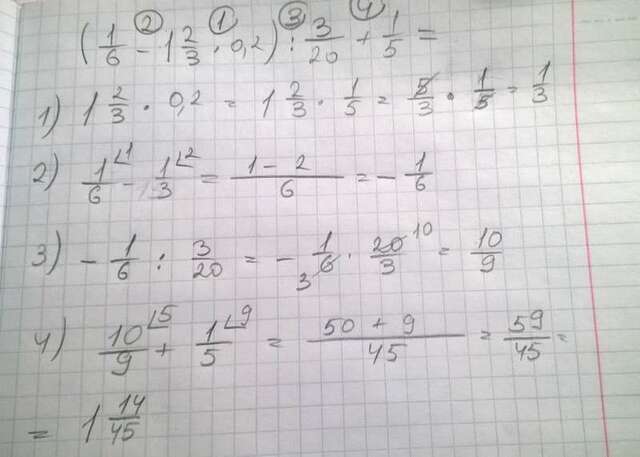 ② ① ③ ④
(1/6 - 1 2/3 · 0,2) : 3/20 + 1/5 =
1) 1 2/3 · 0,2 = 1 2/3 · 1/5 = 5/3 · 1/5 = 1/3
2) 1/6 ∠1 - 1/3 ∠2 = (1 - 2)/6 = - 1/6
3) - 1/6 : 3/20 = - 1/6 3 · 20/3 10 = 10/9
4) 10/9 ∠5 + 1/5 ∠9 = (50 + 9)/45 = 59/45 =
= 1 14/45